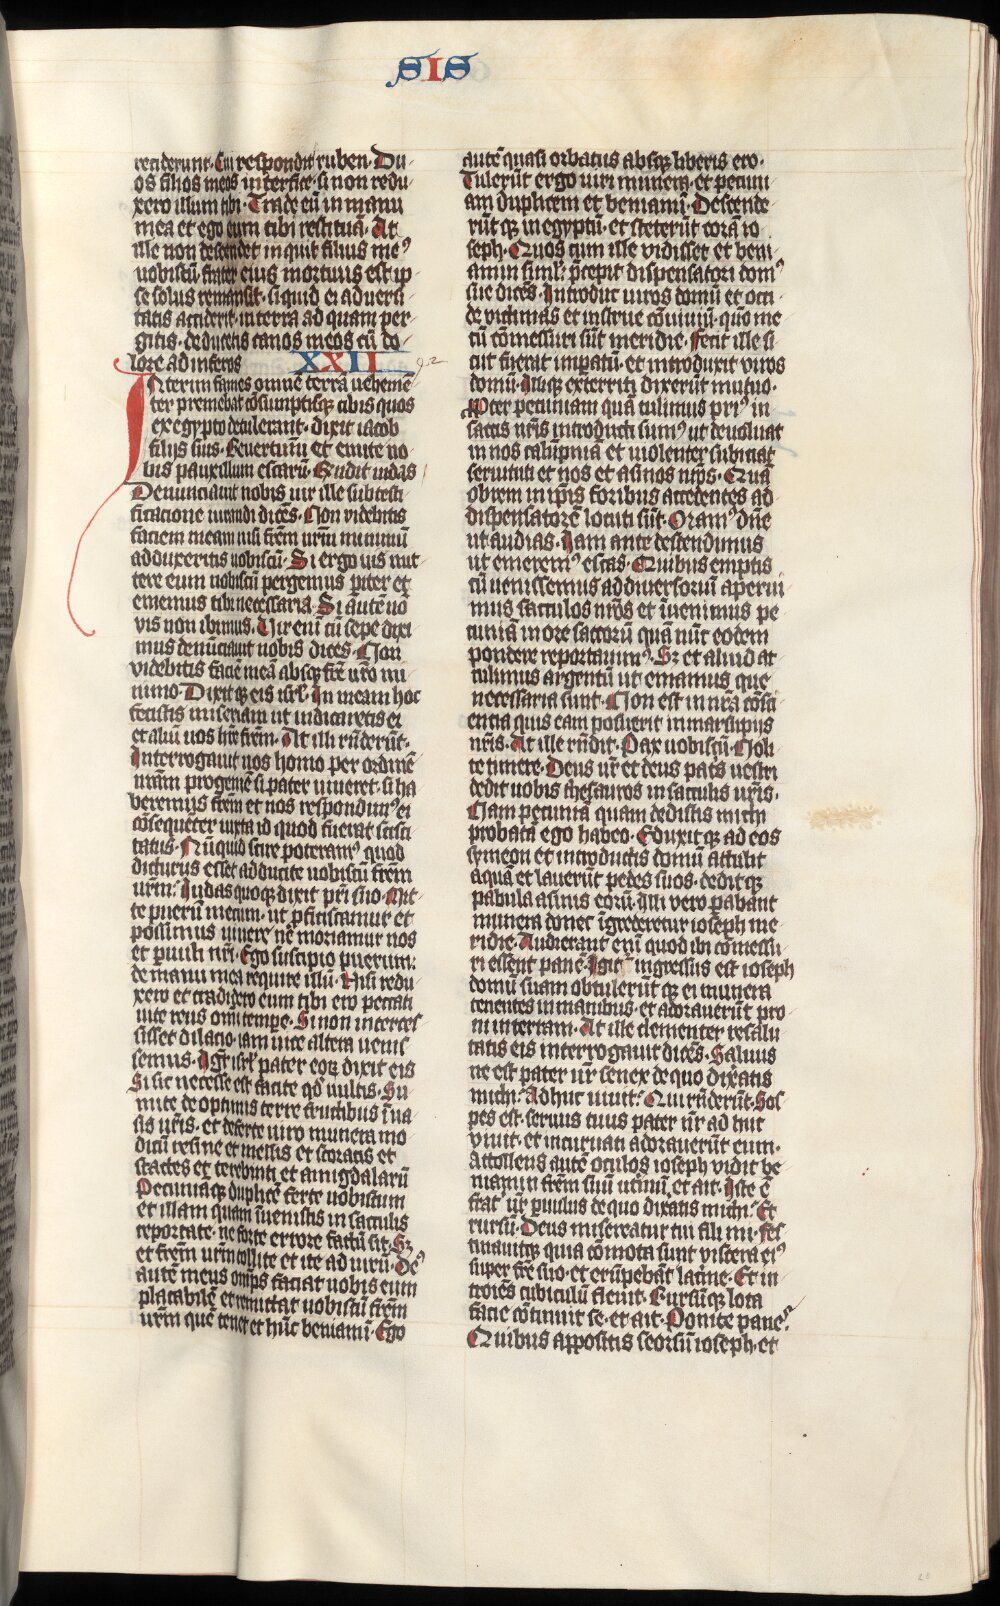 SIS
reciderunt. Cui respondit ruben. Du-
os filios meos interfice. si non redu-
xero illum tibi. Trade eū in manu
mea et ego eum tibi restituā. At
ille non descendet inquit filius meꝰ
uobiscū. frater eius mortuus est ip-
se solus remansit. siquid ei aduersi-
tatis acciderit. in terra ad quam per-
gitis. deducetis canos meos cū do-
lore ad inferos XXII
Interim fames omnē terrā uehemē-
ter premebat cōsumptisqꝫ cibis quos
ex egypto detulerant. dixit iacob
filijs suis. Reuertimī et emite no-
bis pauxillum escarū. Rūdit iudas
Denunciauit nobis uir ille sub testi-
ficacione iurandi dicēs. Non videbitis
faciem meam nisi frēm urm minimū
adduxeritis uobiscū. Si ergo uis mit-
tere eum uobiscū pergemus pīter et
ememus tibi necessaria. Si autē no
vis non ibimus. Vir enī ut sepe dixi
mus denūciauit nobis dicēs. Non
videbitis faciē meā absqꝫ frē uro mi
nimo. Dixitqꝫ eis isrl. In meam hoc
fecistis miseriam ut indicaretis ei
et aliū uos hr̄e frēm. At illi rūderūt.
Interrogauit nos homo per ordinē
nrām progeniē si pater uiueret. si ha
beremus frēm et nos respondimꝰ ei
cōsequēter iuxta id quod fuerat sciscī
tatus. Nūquid scire poteramꝰ quod
dicturus esset adducite uobiscū frēm
urm. Iudas quoqꝫ dixit pri suo. Mit-
te puerū mecum. ut pficiscamur et
possimus uiuere. ne moriamur nos
et puuli nri. Ego suscipio puerum.
de manu mea require illū. Nisi redu-
xero et tradidero eum tibi ero peccati
in te reus omi tempe. Si non interces-
sisset dilacio iam uice altera uenis-
semus. Igr isrl pater eorꝫ dixit eis
Si sic necesse est facite qd uultis. Su-
mite de optimis terre fructibus ī ua
sis uris. et deferte uiro munera mo-
dicū resine et mellis et storacis et
stactes et terebinti et amigdalarū
Pecuniā qꝫ duplicē ferte uobiscum
et illam quam īuenistis in sacculis
reportate. ne forte errore factū sit. Sꝫ
et frēm urm tollite et ite ad uirū. Deꝰ
autē meus omps faciat uobis eum
placabilē et remittat uobiscū frēm
urm quē tenet et hūc beniamī. Ego
autē quasi orbatus absqꝫ liberis ero.
Tulerūt ergo uiri munera. et pecuni
am duplicem et beniamī. Descende-
rūt qꝫ in egyptū. et steterūt corā io
seph. Quos cum ille vidisset et beni
amin simł. p̄cepit dispensatori domꝰ
sue dicēs. Introduc uiros domū et occi-
de victimas et instrue cōuiuiū. quō me-
cū comessuri sūt meridie. Fecit ille si
cut fuerat impatū. et introduxit viros
domū. Ibiqꝫ exterriti dixerūt mutuo.
Pter pecuniam quā tulimus priꝰ in
saccis nris introducti sumꝰ ut deuoluat
in nos calūpniā et uiolenter subiciat
seruituti et nos et asinos nrōs. Quā
obrem in ipis foribus accedentes ad
dispensatorē locuti sūt. Oramꝰ dn̄e
ut audias. Iam ante descendimus
ut ememꝰ escas. Quibus emptis
cū uenissemus ad diuersoriū aperui
mus sacculos nrōs et īuenimus pe
cuniā in ore saccorū quā nūc eodem
pondere reportauimꝰ. Sꝫ et aliud at
tulimus argentū ut emamus que
necessaria sunt. Non est in nrā cōsci-
entia quis eam posuerit in marsupijs
nris. At ille rn̄dit. Pax uobiscū. Noli
te timere. Deus ur et deus patris uestri
dedit uobis thesauros in sacculis uris.
Nam pecuniā quam dedistis michi
probatā ego habeo. Eduxit qꝫ ad eos
symeon et introductis domū attulit
aquā et lauerūt pedes suos. dedit qꝫ
pabula asinis eorū. Illi vero pabant
munera donec īgrederetur ioseph me
ridie. Audierant enī quod ibi comessu
ri essent panē. Igit ingressus est ioseph
domū suam obtulerūt qꝫ ei munera
tenentes in manibus. et adorauerūt pro
ni in terram. At ille clementer resalu
tatis eis interrogauit dicēs. Saluus
ne est pater ur senex de quo dixatis
michi. Adhuc uiuit. Qui rn̄derūt. Sos
pes est. seruus tuus pater nr ad huc
viuit. et incuruati adorauerūt eum.
Attollens autē oculos ioseph vidit be-
niamin frēm suū utinū et ait. Iste ē
frat ur puulus de quo dixatis michi. Et
rursū. Deus misereatur tui fili mi. fes-
tinauitqꝫ quia cōmota sunt viscera eiꝰ
super frē suo. et erūpebāt lacrīe. Et in-
troiēs cubiculū fleuit. Rursūqꝫ lota
facie cōtinuit se. et ait. Ponite panes.
Quibus appositis seorsū ioseph. et
28